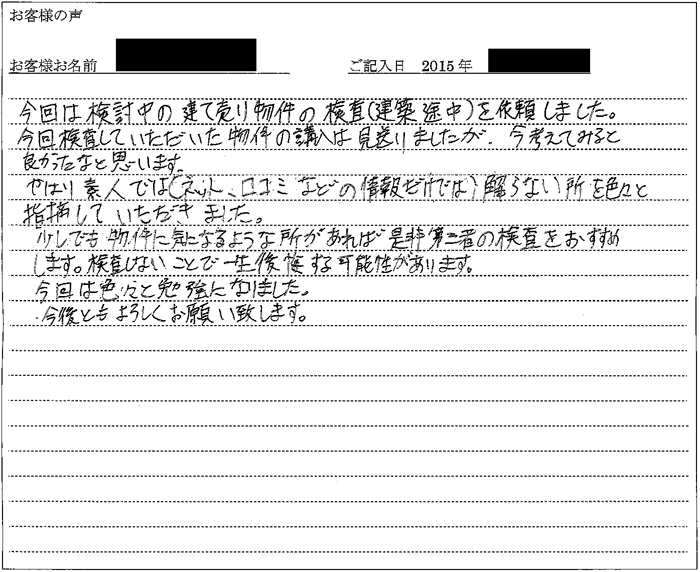 お客様の声
お客様お名前
ご記入日 2015年
今回は検討中の建て売り物件の検査(建築途中)を依頼しました。
今回検査していただいた物件の購入は見送りましたが、今考えてみると
良かったなと思います。
やはり素人では(ネット、口コミなどの情報だけでは)解らない所を色々と
指摘していただきました。
少しでも物件に気になるような所があれば是非第三者の検査をおすすめ
します。検査しないことで一生後悔する可能性があります。
今回は色々と勉強になりました。
今後ともよろしくお願い致します。